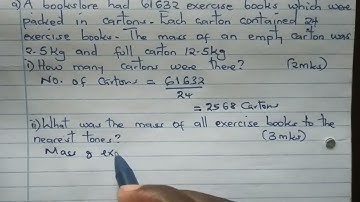 a) A bookstore had 61632 exercise books which were
packed in cartons. Each carton contained 24
exercise books. The mass of an empty carton was
2.5kg and full carton 12.5kg
i) How many cartons were there? (2mks)
No. of Cartons = 61632
24
= 2568 Cartons
ii) What was the mass of all exercise books to the
nearest tones? (3mks)
Mass of exe